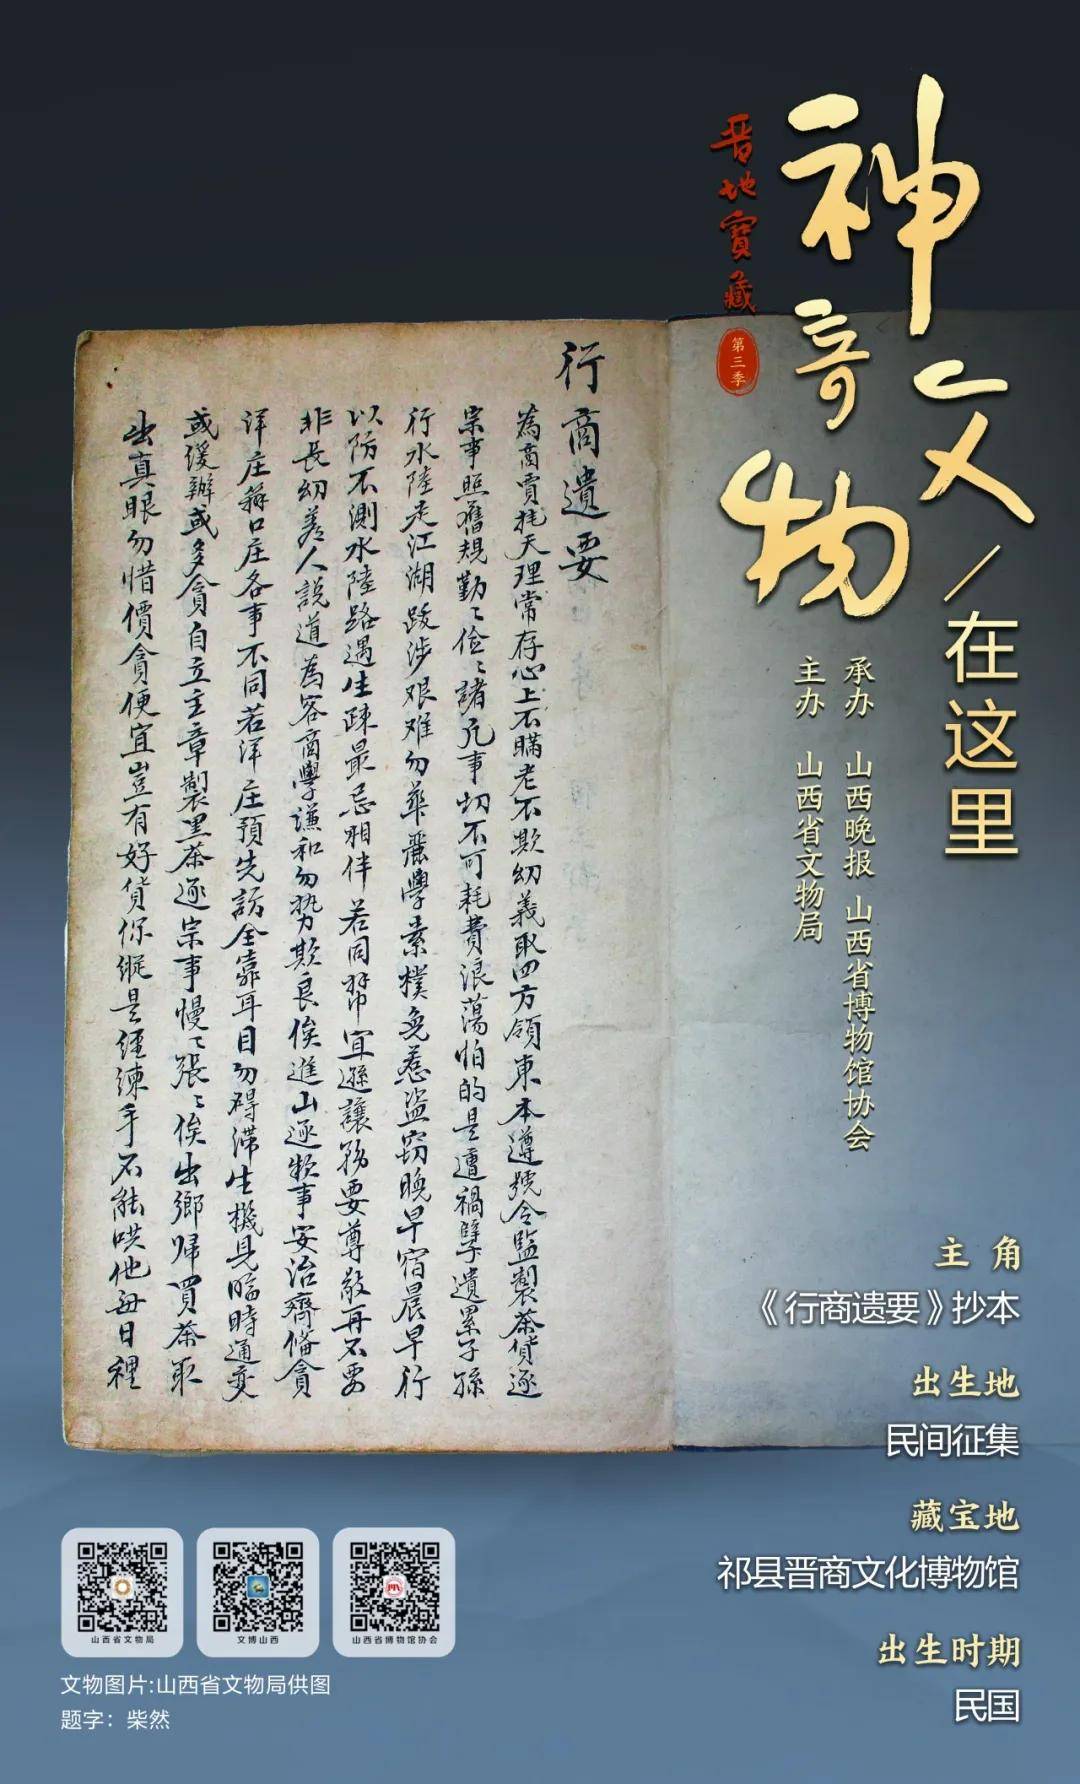 晋地寳藏
第三季
神奇文物
/在这里
承办 山西晚报 山西省博物馆协会
主办 山西省文物局
行商遺要
為商賈把天理常存心上不瞞老不欺幼義取四方領東本遵號令監製茶貨逐
宗事照舊規勤〻儉〻諸凡事切不可耗費浪蕩怕的是遭禍孽遺累子孫
行水陸走江湖跋涉艰难勿華麗學素樸免惹盜窃晚早宿晨早行
以防不測水陸路遇生疎最忌相伴若同幇宜遜讓務要尊敬再不要
非長幼羞人説道為客商學谦和勿势欺良俟進山逐欵事安治齊俻貪
洋庄籍口庄各事不同若洋庄預先訪全靠耳目勿碍滞生機見臨時通变
或缓辦或多貪自立主章製黑茶逐宗事慢〻張〻俟出鄉歸買茶取
出真眼勿惜價貪便宜豈有好貨你縱是經練手不能哄他每日裡
主角
《行商遗要》抄本
出生地
民间征集
藏宝地
祁县晋商文化博物馆
出生时期
民国
山西省文物局
文博山西
山西省博物馆协会
文物图片:山西省文物局供图
题字：柴然